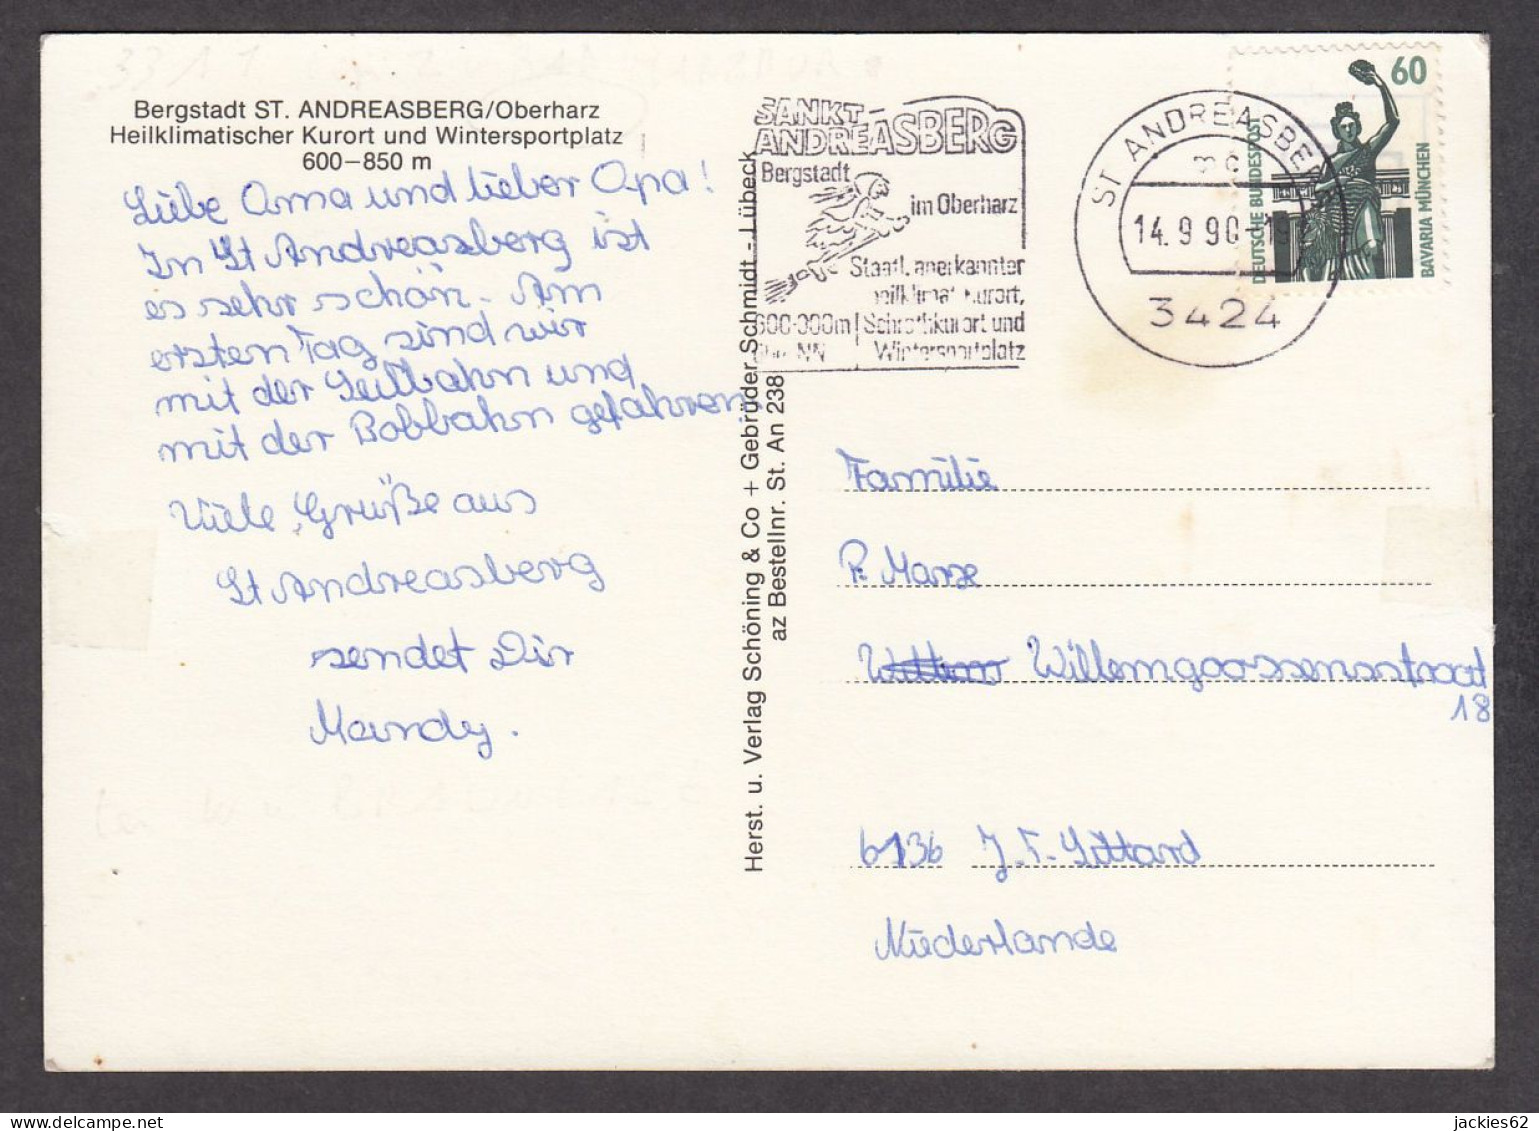 Bergstadt ST. ANDREASBERG/Oberharz
Heilklimatischer Kurort und Wintersportplatz
600–850 m
Liebe Oma und lieber Opa!
In St Andreasberg ist
es sehr schön. Am
ersten Tag sind wir
mit der Seilbahn und
mit der Bobbahn gefahren.
Viele Grüße aus
St Andreasberg
sendet Dir
Mandy.
Herst. u. Verlag Schöning & Co + Gebrüder Schmidt - Lübeck
az Bestellnr. St. An 238
SANKT
ANDREASBERG
Bergstadt
im Oberharz
Staatl. anerkannter
heilklimat. Kurort,
Schrothkurort und
Wintersportplatz
ST ANDREASBERG
mc
14.9.90
3424
60
DEUTSCHE BUNDESPOST
BAVARIA MÜNCHEN
Familie
P. Marze
Willemgoossensstraat
18
6136 J.F. Sittard
Niederlande
jackies62